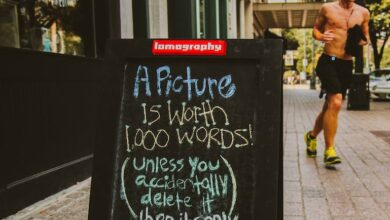 lomography
A Picture
IS WORTH
1,000 WORDS!
(unless you
accidentally
delete it
then it's only